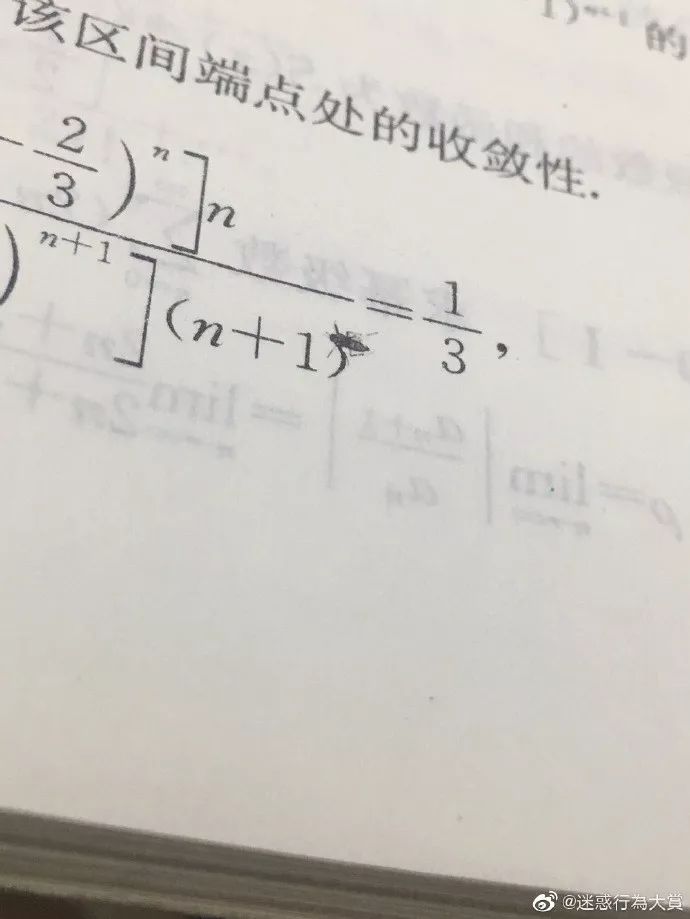 1)ⁿ⁻¹ 的
该区间端点处的收敛性.
- 2/3 )ⁿ ] n
) ⁿ⁺¹ ] (n+1) = 1/3 ,
@迷惑行為大賞